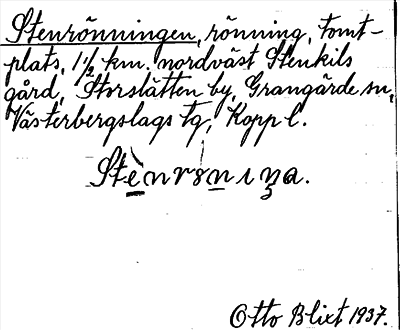 Stenrönningen, rönning, tomt-
plats, 1 1/2 km. nordväst Stenkils
gård, Storslätten by, Grangärde sn,
Västerbergslags tg, Kopp l.
Otto Blixt 1937.